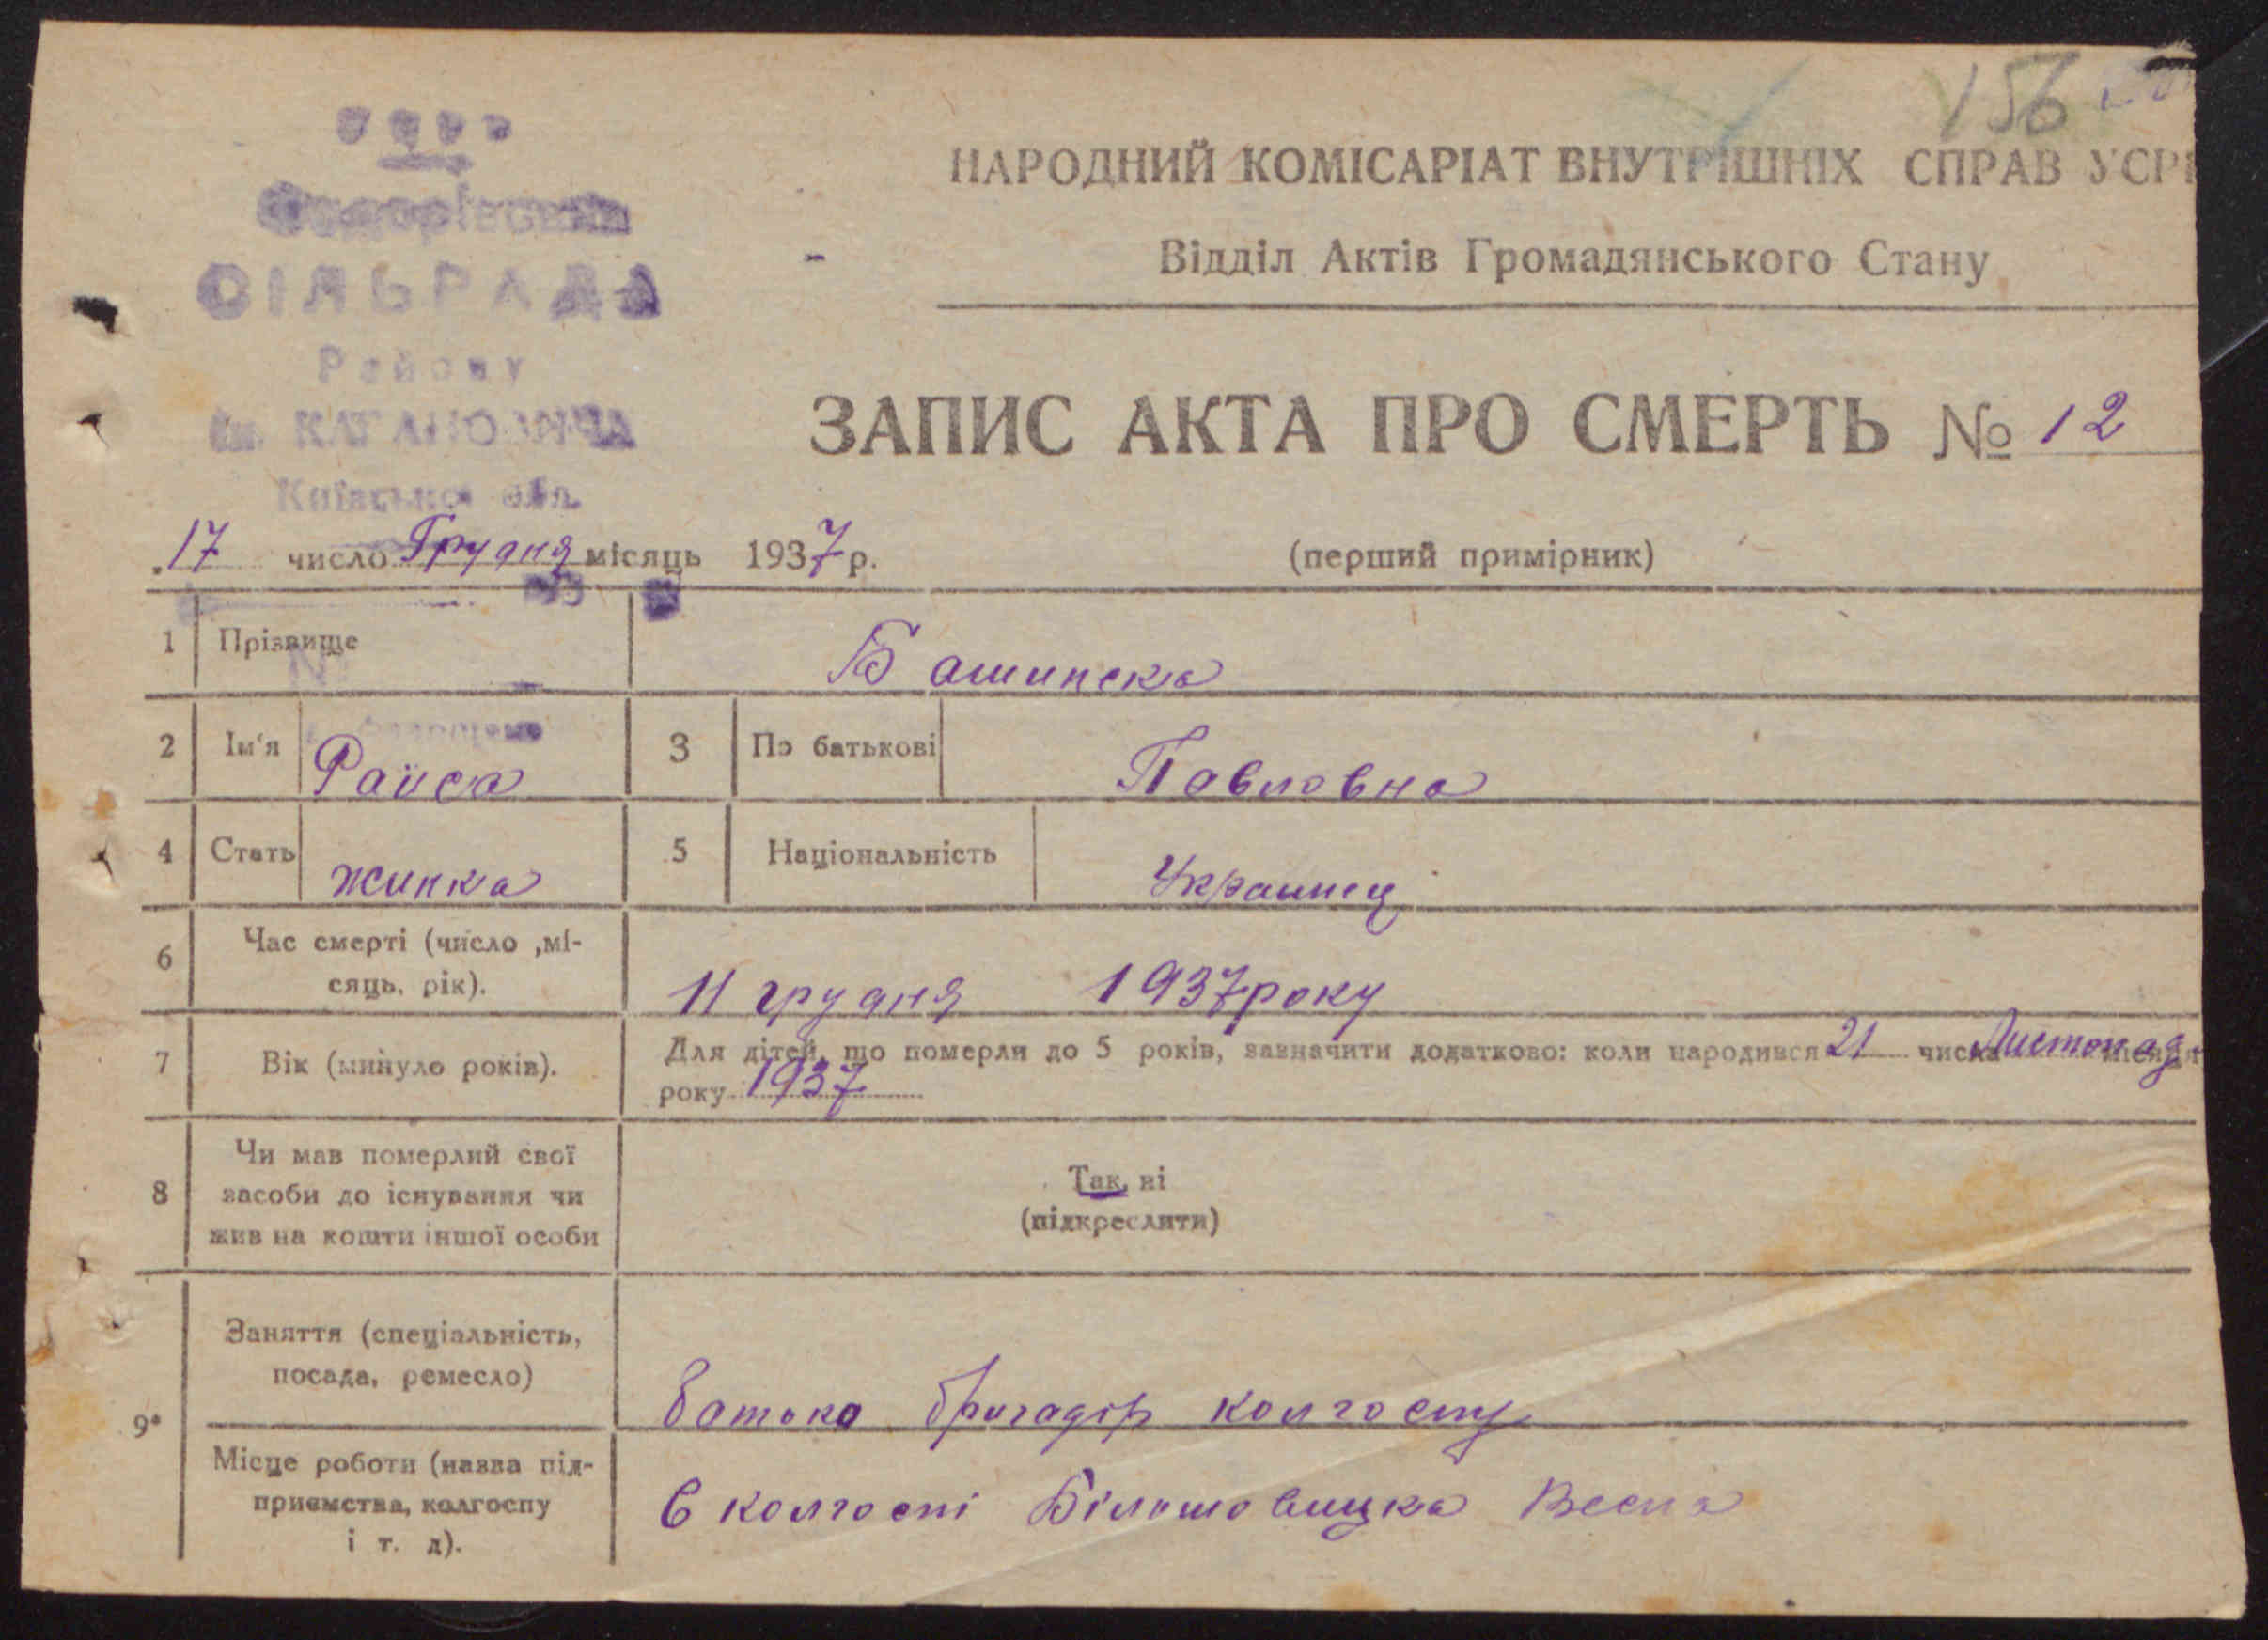 156
УСРР
СІЛЬРАДА
Району
ім. КАГАНОВИЧА
Київської обл.
НАРОДНИЙ КОМІСАРІАТ ВНУТРІШНІХ СПРАВ УСРР
Відділ Актів Громадянського Стану
ЗАПИС АКТА ПРО СМЕРТЬ № 12
17 число Грудня місяць 1937 р.
(перший примірник)
1 Прізвище Башинска
2 Ім'я Раиса 3 По батькові Павловна
4 Стать жинка 5 Національність Украинец
6 Час смерті (число ,мі-
сяць, рік).
11 грудня 1937 року
7 Вік (минуло років).
Для дітей, що померли до 5 років, зазначити додатково: коли народився 21 числа Листопад місяця
року 1937
8 Чи мав померлий свої
засоби до існування чи
жив на кошти іншої особи
Так, ні
(підкреслити)
9*
Заняття (спеціальність,
посада, ремесло)
батько бригадір колгоспу
Місце роботи (назва під-
приємства, колгоспу
і т. д).
в колгоспі Весна